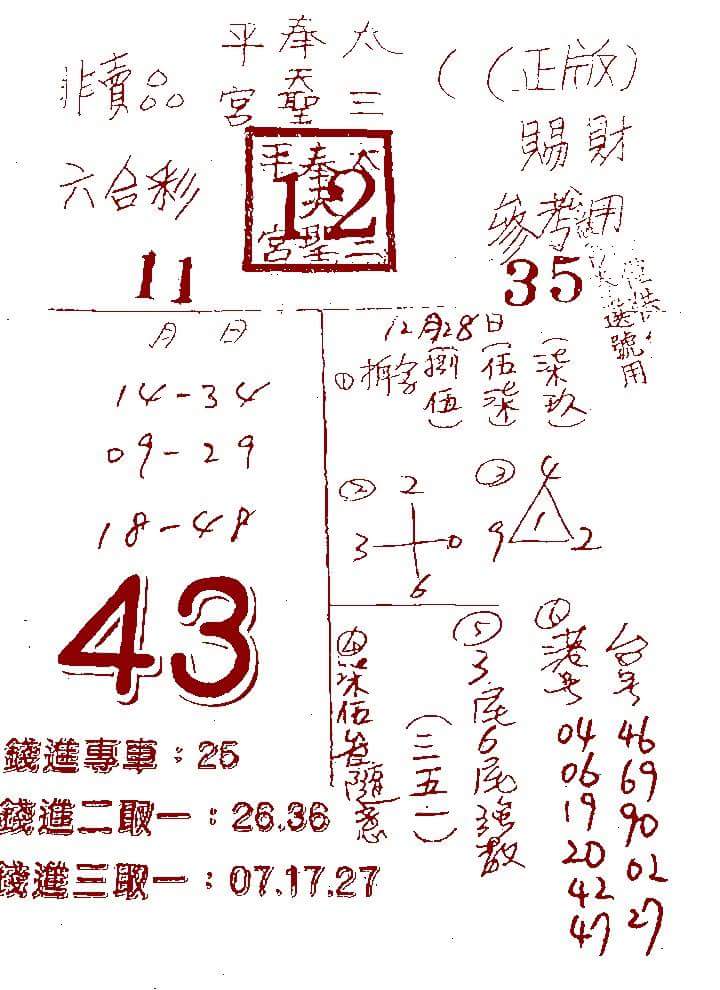 太奉平
三天聖宮
非賣品
((正版)
賜財
參考用
六合彩
太奉平
三天聖宮
12
11
35
僅供選號用
月 日
14-34
09-29
18-48
43
錢進專車:25
錢進二取一:26.36
錢進三取一:07.17.27
12月28日
① (捌伍) (伍柒) (柒玖)
② 2 3 0 6
③ 4 9 1 2
④ 柒伍 隨意
(三五一)
⑤ 3尾6尾強數
⑥ 港号 04 06 19 20 42 47
台号 46 69 90 02 27